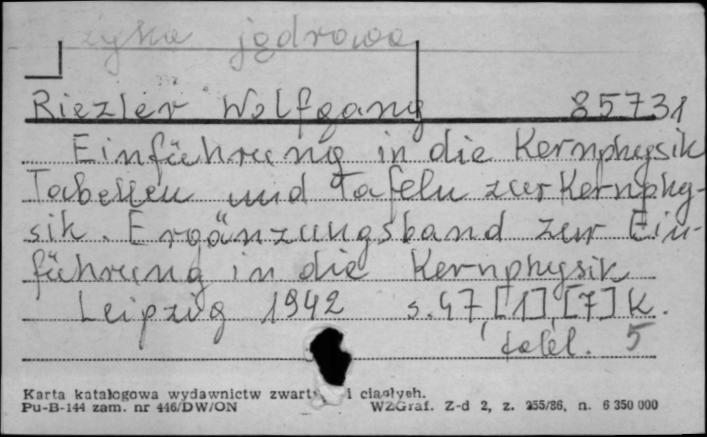 zyka jądrowa
Riezler Wolfgang 85731
Einführung in die Kernphysik
Tabellen und Tafeln zur Kernphy-
sik. Ergänzungsband zur Ein-
führung in die Kernphysik
Leipzig 1942 s. 47, [1], [7] k.
tabl. 5
Karta katalogowa wydawnictw zwart i ciągłych.
Pu-B-144 zam. nr 446/DW/ON WZGraf. Z-d 2, z. 255/86, n. 6 350 000